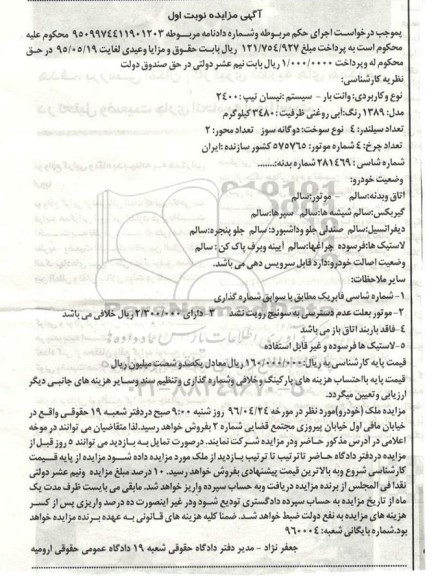 آگهی مزایده نوبت اول
بموجب درخواست اجرای حکم مربوطه وشماره دادنامه مربوطه ۹۵۰۹۹۷۴۴۱۱۹۰۱۲۰۳ محکوم علیه
محکوم است به پرداخت مبلغ ۱۲۱/۷۵۴/۹۲۷ ریال بابت حقوق و مزایا وعیدی لغایت ۹۵/۰۵/۱۹ در حق
محکوم له وپرداخت ۱/۰۰۰/۰۰۰۰ ریال بابت نیم عشر دولتی در حق صندوق دولت
نظریه کارشناسی:
نوع وکاربردی: وانت بار - سیستم :نیسان تیپ: ۲۴۰۰
مدل: ۱۳۸۹ رنگ:آبی روغنی ظرفیت : ۳۴۸۰ کیلوگرم
تعداد سیلندر: ۴ نوع سوخت: دوگانه سوز تعداد محور: ۲
تعداد چرخ: ۴ شماره موتور: ۵۷۵۷۶۵ کشور سازنده :ایران
شماره شاسی : ۲۸۱۴۶۹ شماره بدنه:.......
وضعیت خودرو:
اتاق وبدنه:سالم - موتور:سالم
گیربکس:سالم شیشه ها:سالم سپرها:سالم
دیفرانسیل:سالم صندلی جلو وداشبورد:سالم جلو پنجره:سالم
لاستیک ها:فرسوده چراغها:سالم آیینه وبرف پاک کن : سالم
وضعیت اصالت خودرو:دارد قابل سرویس دهی می باشد.
سایر ملاحظات:
۱- شماره شاسی فابریک مطابق با سوابق شماره گذاری
۲- موتور بعلت عدم دسترسی به سوئیچ رویت نشد ۳- دارای ۲/۳۰۰/۰۰۰ ریال خلافی می باشد
۴- فاقد باربند اتاق باز می باشد
۵- لاستیک ها فرسوده و غیر قابل استفاده
قیمت پایه کارشناسی به ریال: ۱۶۰/۰۰۰/۰۰۰ ریال معادل یکصدو شصت میلیون ریال
قیمت پایه بااحتساب هزینه های پارکینگ وخلافی وشماره گذاری وتنظیم سند وسایر هزینه های جانبی دیگر
ارزیابی وتعیین میگردد.
مزایده ملک (خودرو)مورد نظر در مورخه ۹۶/۰۴/۲۴ روز شنبه ۹:۰۰ صبح دردفتر شعبه ۱۹ حقوقی واقع در
خیابان مافی اول خیابان پیروزی مجتمع قضایی شماره ۲ بفروش خواهد رسید.لذا متقاضیان می توانند در موعد
اعلامی در آدرس مذکور حاضر ودر مزایده شرکت نمایند. درصورت تمایل به بازدید می توانند ۵ روز قبل از
مزایده دردفتر دادگاه حاضر تا ترتیب بازدید از ملک مورد مزایده داده شود مزایده از پایه قیمت
کارشناسی شروع وبه بالاترین قیمت پیشنهادی بفروش خواهد رسید. ۱۰ درصد مبلغ مزایده ونیم عشر دولتی
نقدا فی المجلس از برنده مزایده دریافت وبه حساب سپرده واریز خواهد شد. مابقی می بایست ظرف مدت یک
ماه از تاریخ مزایده به حساب سپرده دادگستری تودیع شود ودر غیر اینصورت ده درصد واریزی پس از کسر
هزینه های مزایده به نفع دولت ضبط خواهد شد. ضمنا کلیه هزینه های قانونی به عهده برنده مزایده خواهد
بود.شماره بایگانی شعبه: ۹۶۰۰۰۴
جعفر نژاد - مدیر دفتر دادگاه حقوقی شعبه ۱۹ دادگاه عمومی حقوقی ارومیه